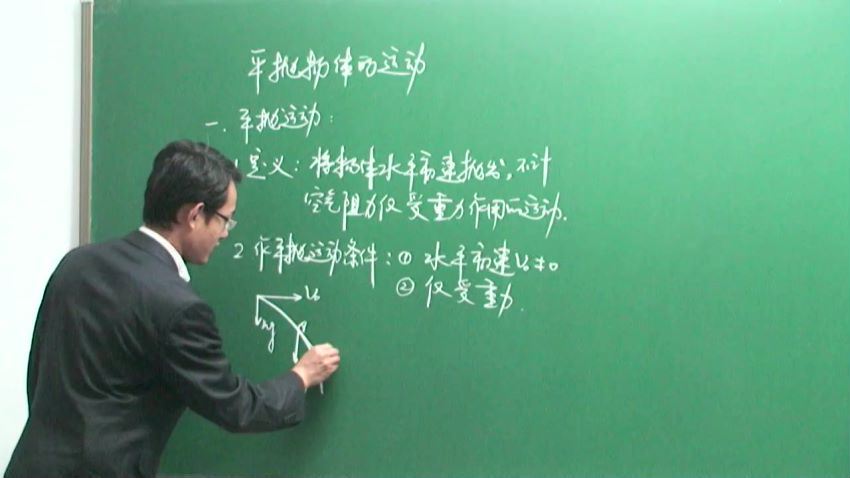 平抛物体的运动
一. 平抛运动:
1 定义: 将物体水平初速抛出, 不计
空气阻力仅受重力作用的运动.
2 作平抛运动条件: ① 水平初速V₀≠0
② 仅受重力.
V₀
mg